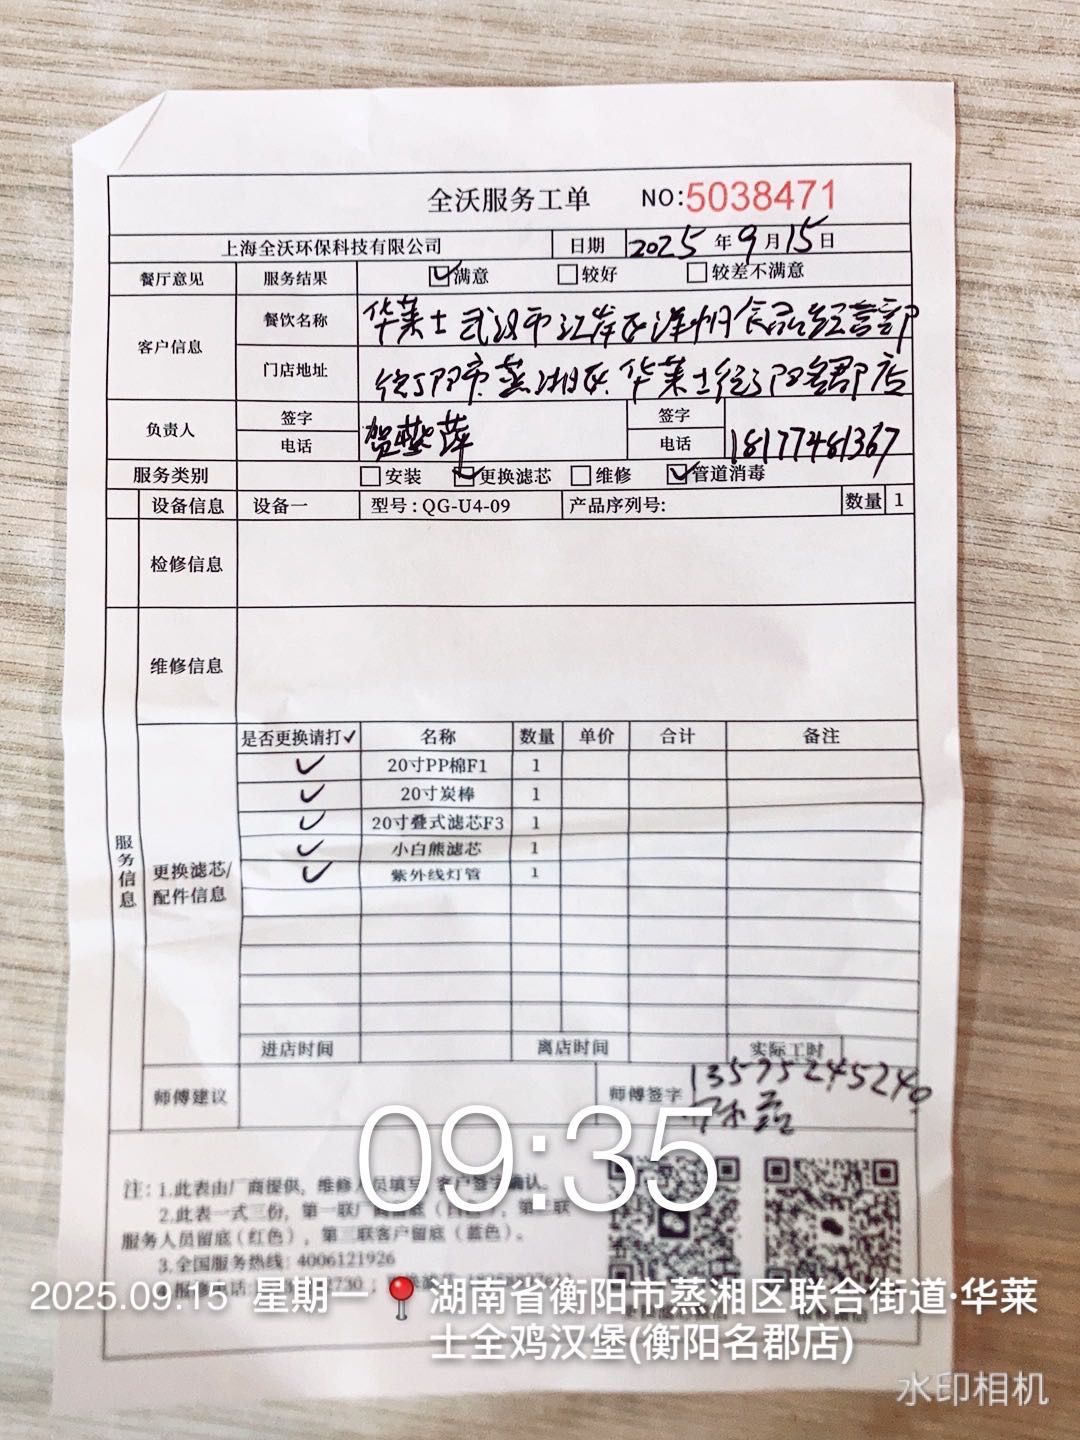 全沃服务工单 NO:5038471
上海全沃环保科技有限公司 日期 2025年9月15日
餐厅意见 服务结果 满意 较好 较差不满意
客户信息 餐饮名称 华莱士武汉市江岸区洋州食品经营部
门店地址 衡阳市蒸湘区华莱士衡阳名郡店
负责人 签字 贺 萍 签字
电话 电话 18177481367
服务类别 安装 更换滤芯 维修 管道消毒
设备信息 设备一 型号:QG-U4-09 产品序列号: 数量 1
检修信息
维修信息
服务信息
更换滤芯/配件信息
是否更换请打✓ 名称 数量 单价 合计 备注
✓ 20寸PP棉F1 1
✓ 20寸炭棒 1
✓ 20寸叠式滤芯F3 1
✓ 小白熊滤芯 1
✓ 紫外线灯管 1
进店时间 离店时间 实际工时
师傅建议 师傅签字 13575245240
09:35
注: 1.此表由厂商提供，维修人员填写 客户签字确认。
2.此表一式三份，第一联厂 底 第二联
服务人员留底(红色)，第三联客户留底（蓝色）。
3.全国服务热线: 4006121926
2025.09.15 星期一 湖南省衡阳市蒸湘区联合街道·华莱
士全鸡汉堡(衡阳名郡店)
水印相机